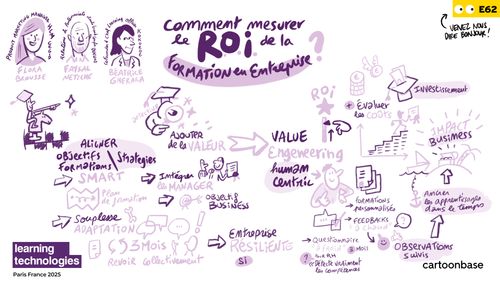 Comment mesurer
le R.O.i. de la
FORMATION en Entreprise ?
E62
VENEZ NOUS
DIRE BONJOUR!
FLORA
BROUSSE
FAYSAL
METICHE
BEATRICE
GHERARA
ROi
+ Évaluer
les COÛTS
INVESTISSEMENT
ALIGNER
OBJECTIFS
FORMATIONS
Stratégies
SMART
Plan
de formation
Souplesse
ADAPTATION
6 9 3 MOIS
Revoir collectivement
AJOUTER
de la VALEUR
Intégrer
les MANAGER
OBJECTIF
BUSINESS
Entreprise
RÉSILIENTE
Si
VALUE
Engeneering
human
CENTRIC
FORMATIONS
personnalisées
FEEDBACKS
à chaud
Questionnaire
IMPACT
BUSINESS
Ancrer
les apprentissages
dans le temps
OBSERVATIONS
suivis
learning
technologies
Paris France 2025
cartoonbase